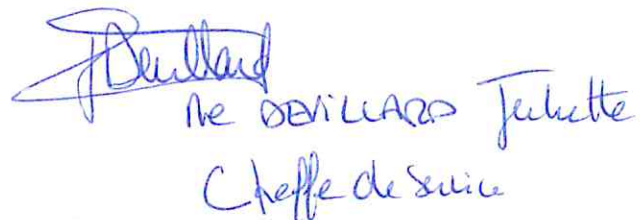 JDevillard
Me DEVILLARD Juliette
Cheffe de Service